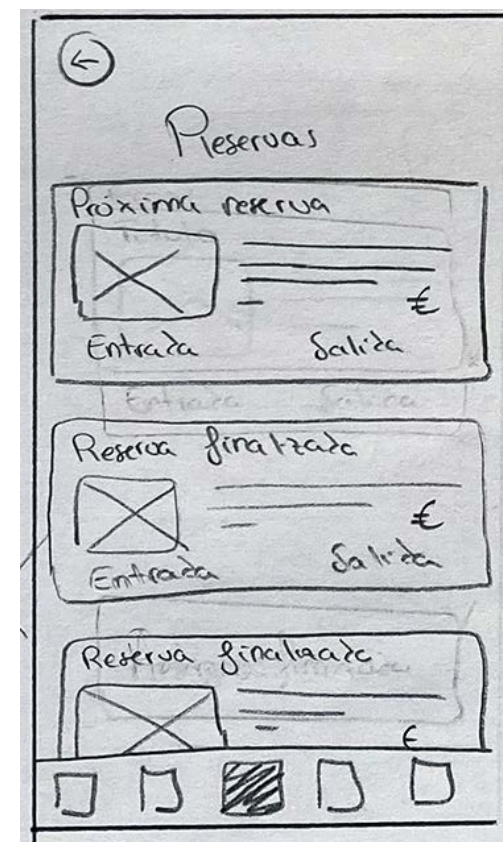 ←
Reservas
Próxima reserva
€
Entrada Salida
Reserva finalizada
€
Entrada Salida
Reserva finalizada
€